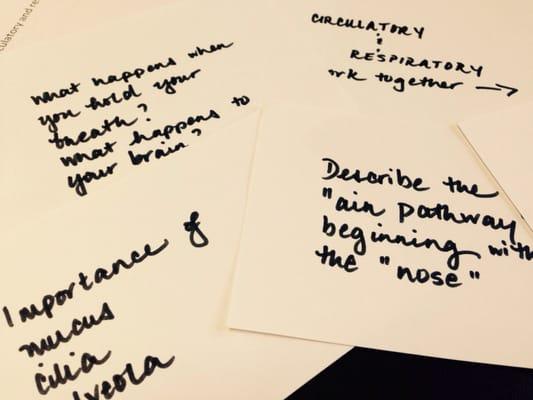 culatory and re
What happens when
you hold your
breath?
What happens to
your brain?
CIRCULATORY
&
RESPIRATORY
rk together →
Describe the
"air pathway
beginning with
the "nose"
Importance of
mucus
cilia
lveola